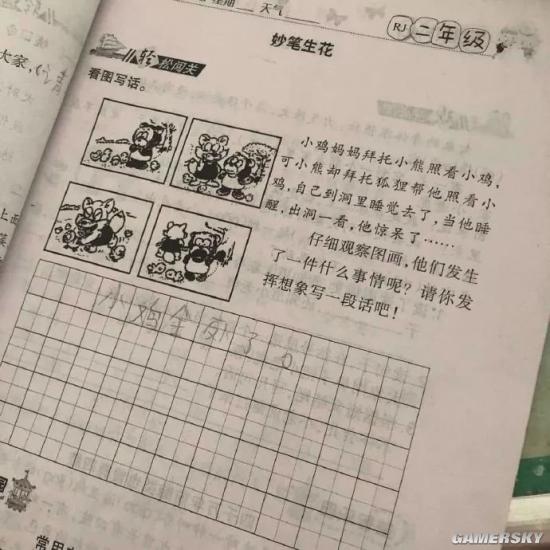 天气
RJ 二年级
妙笔生花
轻松闯关
看图写话。
小鸡妈妈拜托小熊照看小鸡,
可小熊却拜托狐狸帮他照看小
鸡,自己到洞里睡觉去了,当他睡
醒,出洞一看,他惊呆了……
仔细观察图画,他们发生
了一件什么事情呢?请你发
挥想象写一段话吧!
小鸡全死了。
大家,
上面
常用
GAMERSKY